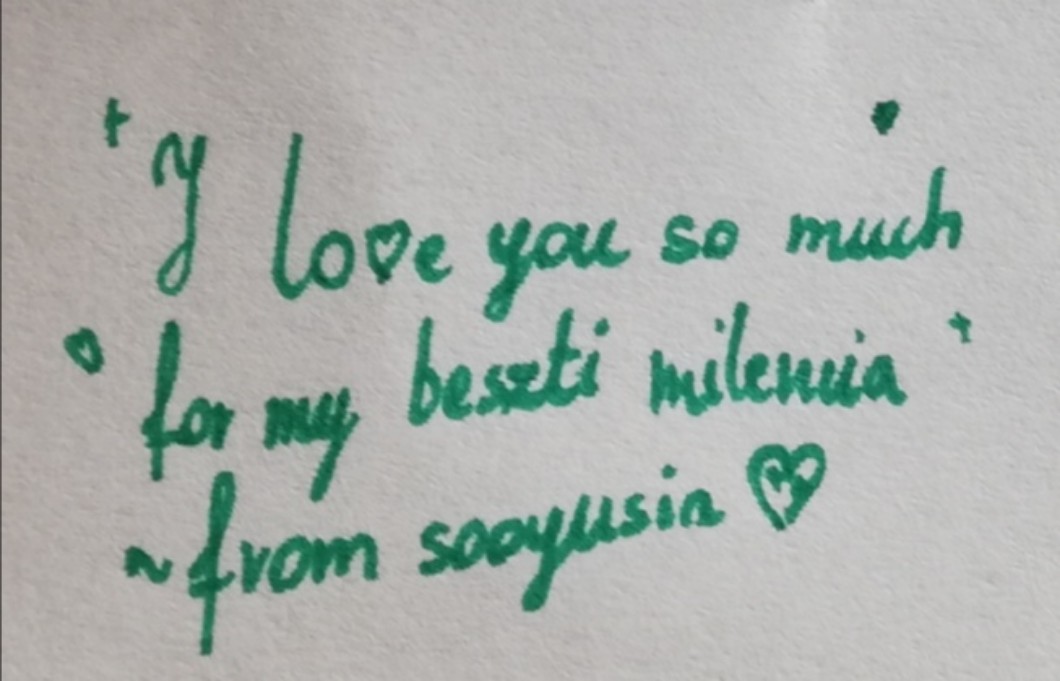 I love you so much
for my beszti milenuia
~from sooyusia